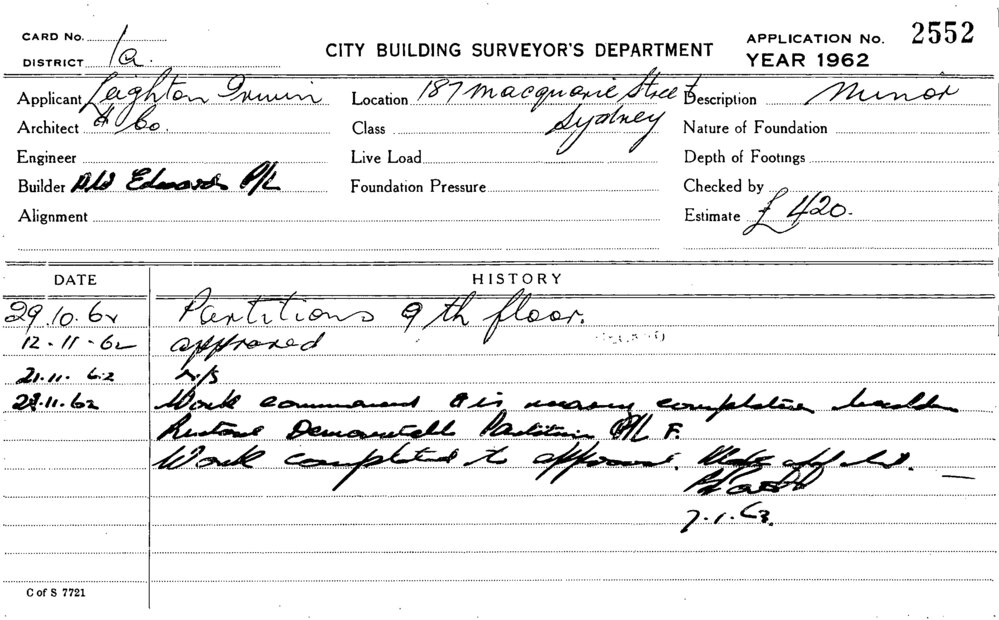 CARD No.
DISTRICT 1a.
CITY BUILDING SURVEYOR'S DEPARTMENT
APPLICATION No. 2552
YEAR 1962
Applicant Leighton Irwin
Location 187 Macquarie Street
Description Minor
Architect & Co.
Class Sydney
Nature of Foundation
Engineer
Live Load
Depth of Footings
Builder Edwards P/L
Foundation Pressure
Checked by
Alignment
Estimate £420.
DATE HISTORY
29.10.62 Partitions 9th floor.
12-11-62 approved
21.11.62 N/S
Work commenced & is nearing completion builder
Demountable Partitions P/L F.
Work completed to approval.
7.1.63.
C of S 7721